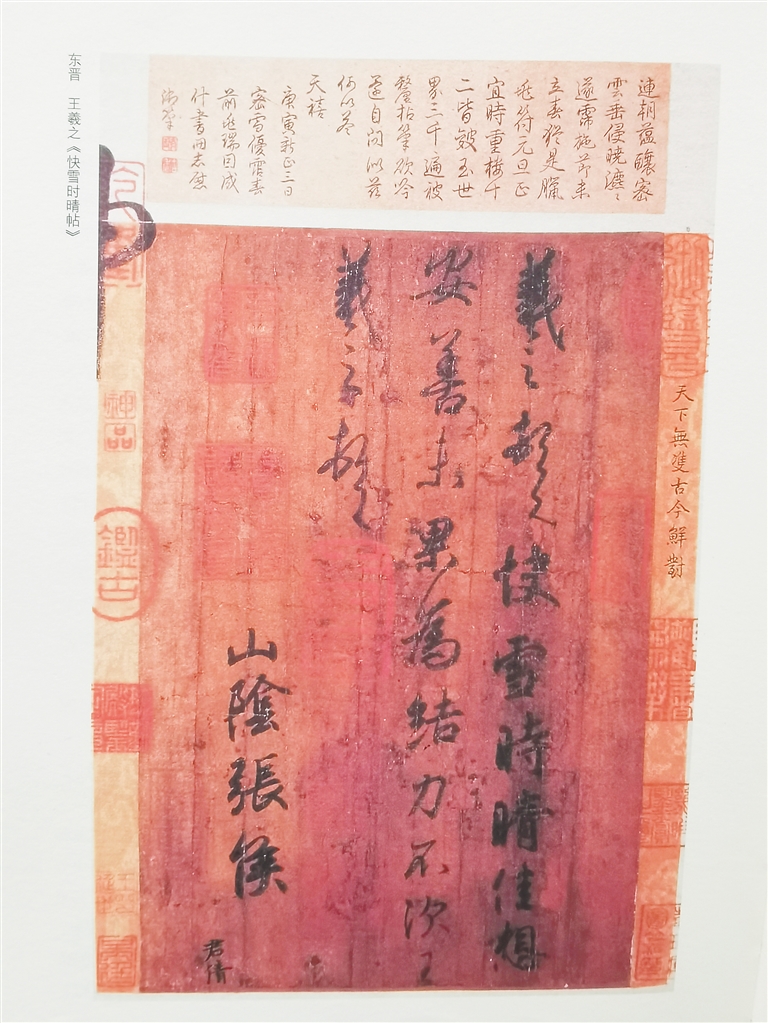 东晋 王羲之《快雪时晴帖》
連朝蘊釀密
雲垂侵曉瀌瀌
遂霈施節未
立春猶是臘
兆符元旦正
宜時重樓千
二皆鋪玉世
界三千遍被
釐拈筆欲吟
還自問似茲
何以答
天禧
庚寅新正三日
密雪優霑春
前兆瑞因成
什書再志慰
御筆
羲之頓首快雪時晴佳想
安善未果為結力不次王
羲之頓首
山陰張侯
君倩
天下無雙古今鮮對
神品
鑑古